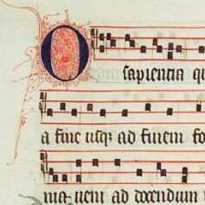 O
sapientia qu
a fine usqꝫ ad finem fo
nia ueni ad docendum n